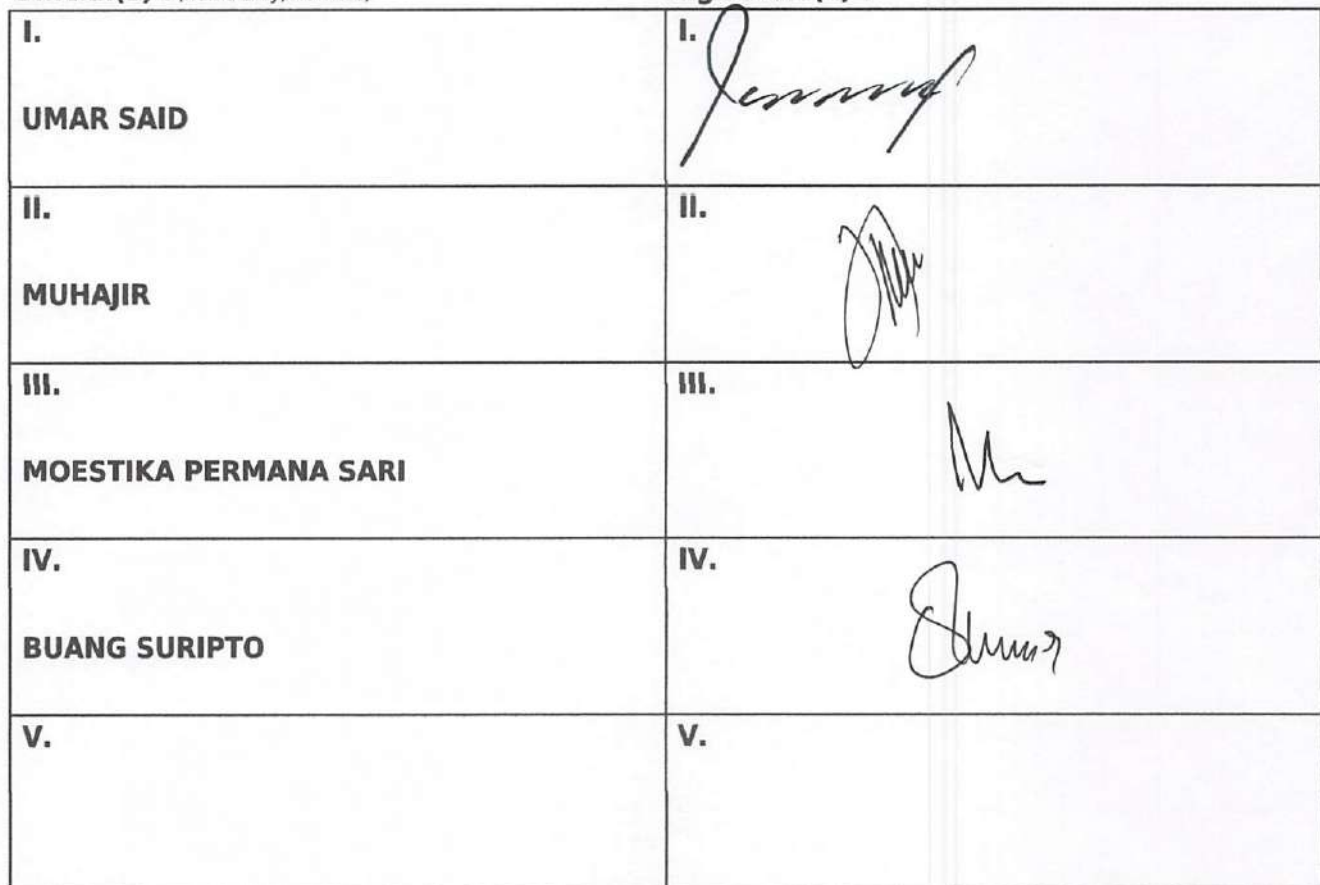 I.
I.
UMAR SAID
II.
II.
MUHAJIR
III.
III.
MOESTIKA PERMANA SARI
IV.
IV.
BUANG SURIPTO
V.
V.